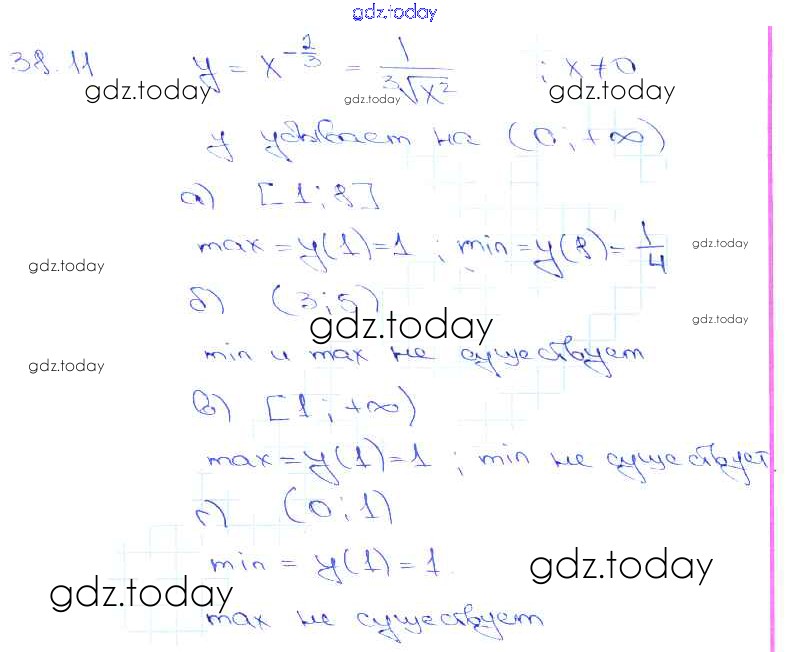 gdz.today
38.11 y = x^{-2/3} = 1/∛x² ; x ≠ 0
gdz.today gdz.today gdz.today
y убывает на (0; +∞)
а) [1; 8]
max = y(1) = 1 ; min = y(8) = 1/4 gdz.today
gdz.today
б) (3; 5)
gdz.today gdz.today
min и max не существуют
gdz.today
в) [1; +∞)
max = y(1) = 1 ; min не существует.
г) (0; 1)
min = y(1) = 1
gdz.today gdz.today
max не существует